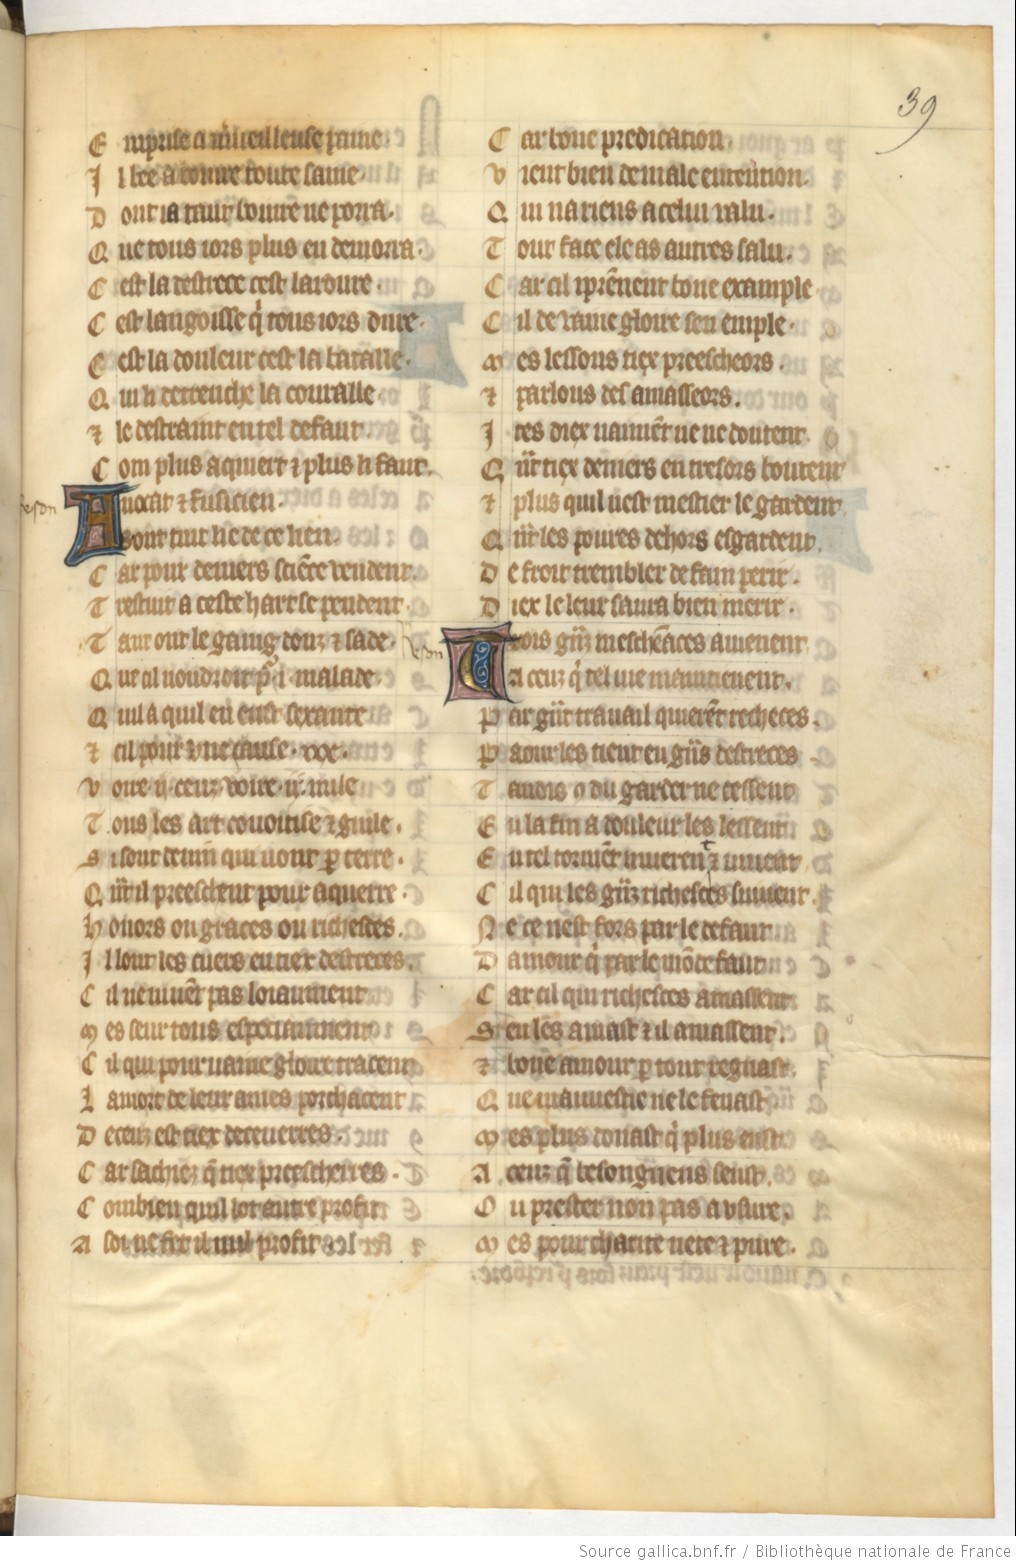 39
E mprise a m̃ueilleuse paine
I l bee a boiure toute saine
D ont ia tant boiure ne porra.
Q ue tous iors plus en demorra.
C est la destrece cest lardure.
C est langoisse q̃ tous iors dure.
C est la douleur cest la bataille
Q ui li detrenche la couraille
⁊ le destraint en tel defaut.
C om plus aquiert ⁊ plus li faut.
A uocat ⁊ fusicien.
s ont tuit lie de ce lien.
C ar pour deniers sciẽce vendent.
T restuit a ceste hart se pendent
T ant ont le gaaing douz ⁊ sade
reson
Q ue cil uoudroit pͦ .i. malade
Q uil a quil en eust sexante
⁊ cil pour vne cause .xxx.
V oire .ij. cenz voire .ij. mile
T ous les art couoitise ⁊ guile.
S i sont deuin qui uont ꝑ terre.
Q ñt il preeschent pour aquerre.
H onors ou graces ou richesces.
I l lont les cuers en tiex destreces.
C il ne uiuẽt pas loiaument
M es seur tous especiaument
C il qui pour uaine gloire tracent
L a mort de leur ames porchacent
D eceuz est tiex deceuerres.
C ar sachiez q̃ tiex preescherres.
C ombien quil lor autre profit
A soi ne fet il nul profit
C ar bone predication
V ient bien de male entention.
Q ui na riens a celui ualu.
T out face ele as autres salu.
C ar cil i prẽnent bone example
C il de vaine gloire sen emple.
M es lessons tiex preescheors.
⁊ parlons des amasseors.
I tes diex naimẽt ne ne doutent.
Q ñt tiex deniers en tresors boutent
⁊ plus quil nest mestier le gardent
Q ñt les poures dehors esgardent.
D e froit trembler de fain perir.
D iex le leur saura bien merir.
reson
T rois gñz mescheãces auienent
A ceuz q̃ tel uie maintienent.
P ar gñt trauail quierẽt recheces.
P aour les tient en gñs destreces
T andis ⁊ du garder ne cessent
E n la fin a douleur les lessent
E n tel tormẽt muerent ⁊ uiuent
C il qui les gñz richesces suiuent.
N e ce nest fors par le defaut
D amour q̃ par le mõde faut
C ar cil qui richesces amassent
S en les amast ⁊ il amassent.
⁊ bone amour ꝑ tout regnast.
Q ue mauuestie ne le fenast
M es plus donast q̃ plus eust
A ceuz q̃ besongneus seust.
O u prestet non pas a vsure.
M es pour charite nete ⁊ pure.
Source gallica.bnf.fr / Bibliothèque nationale de France